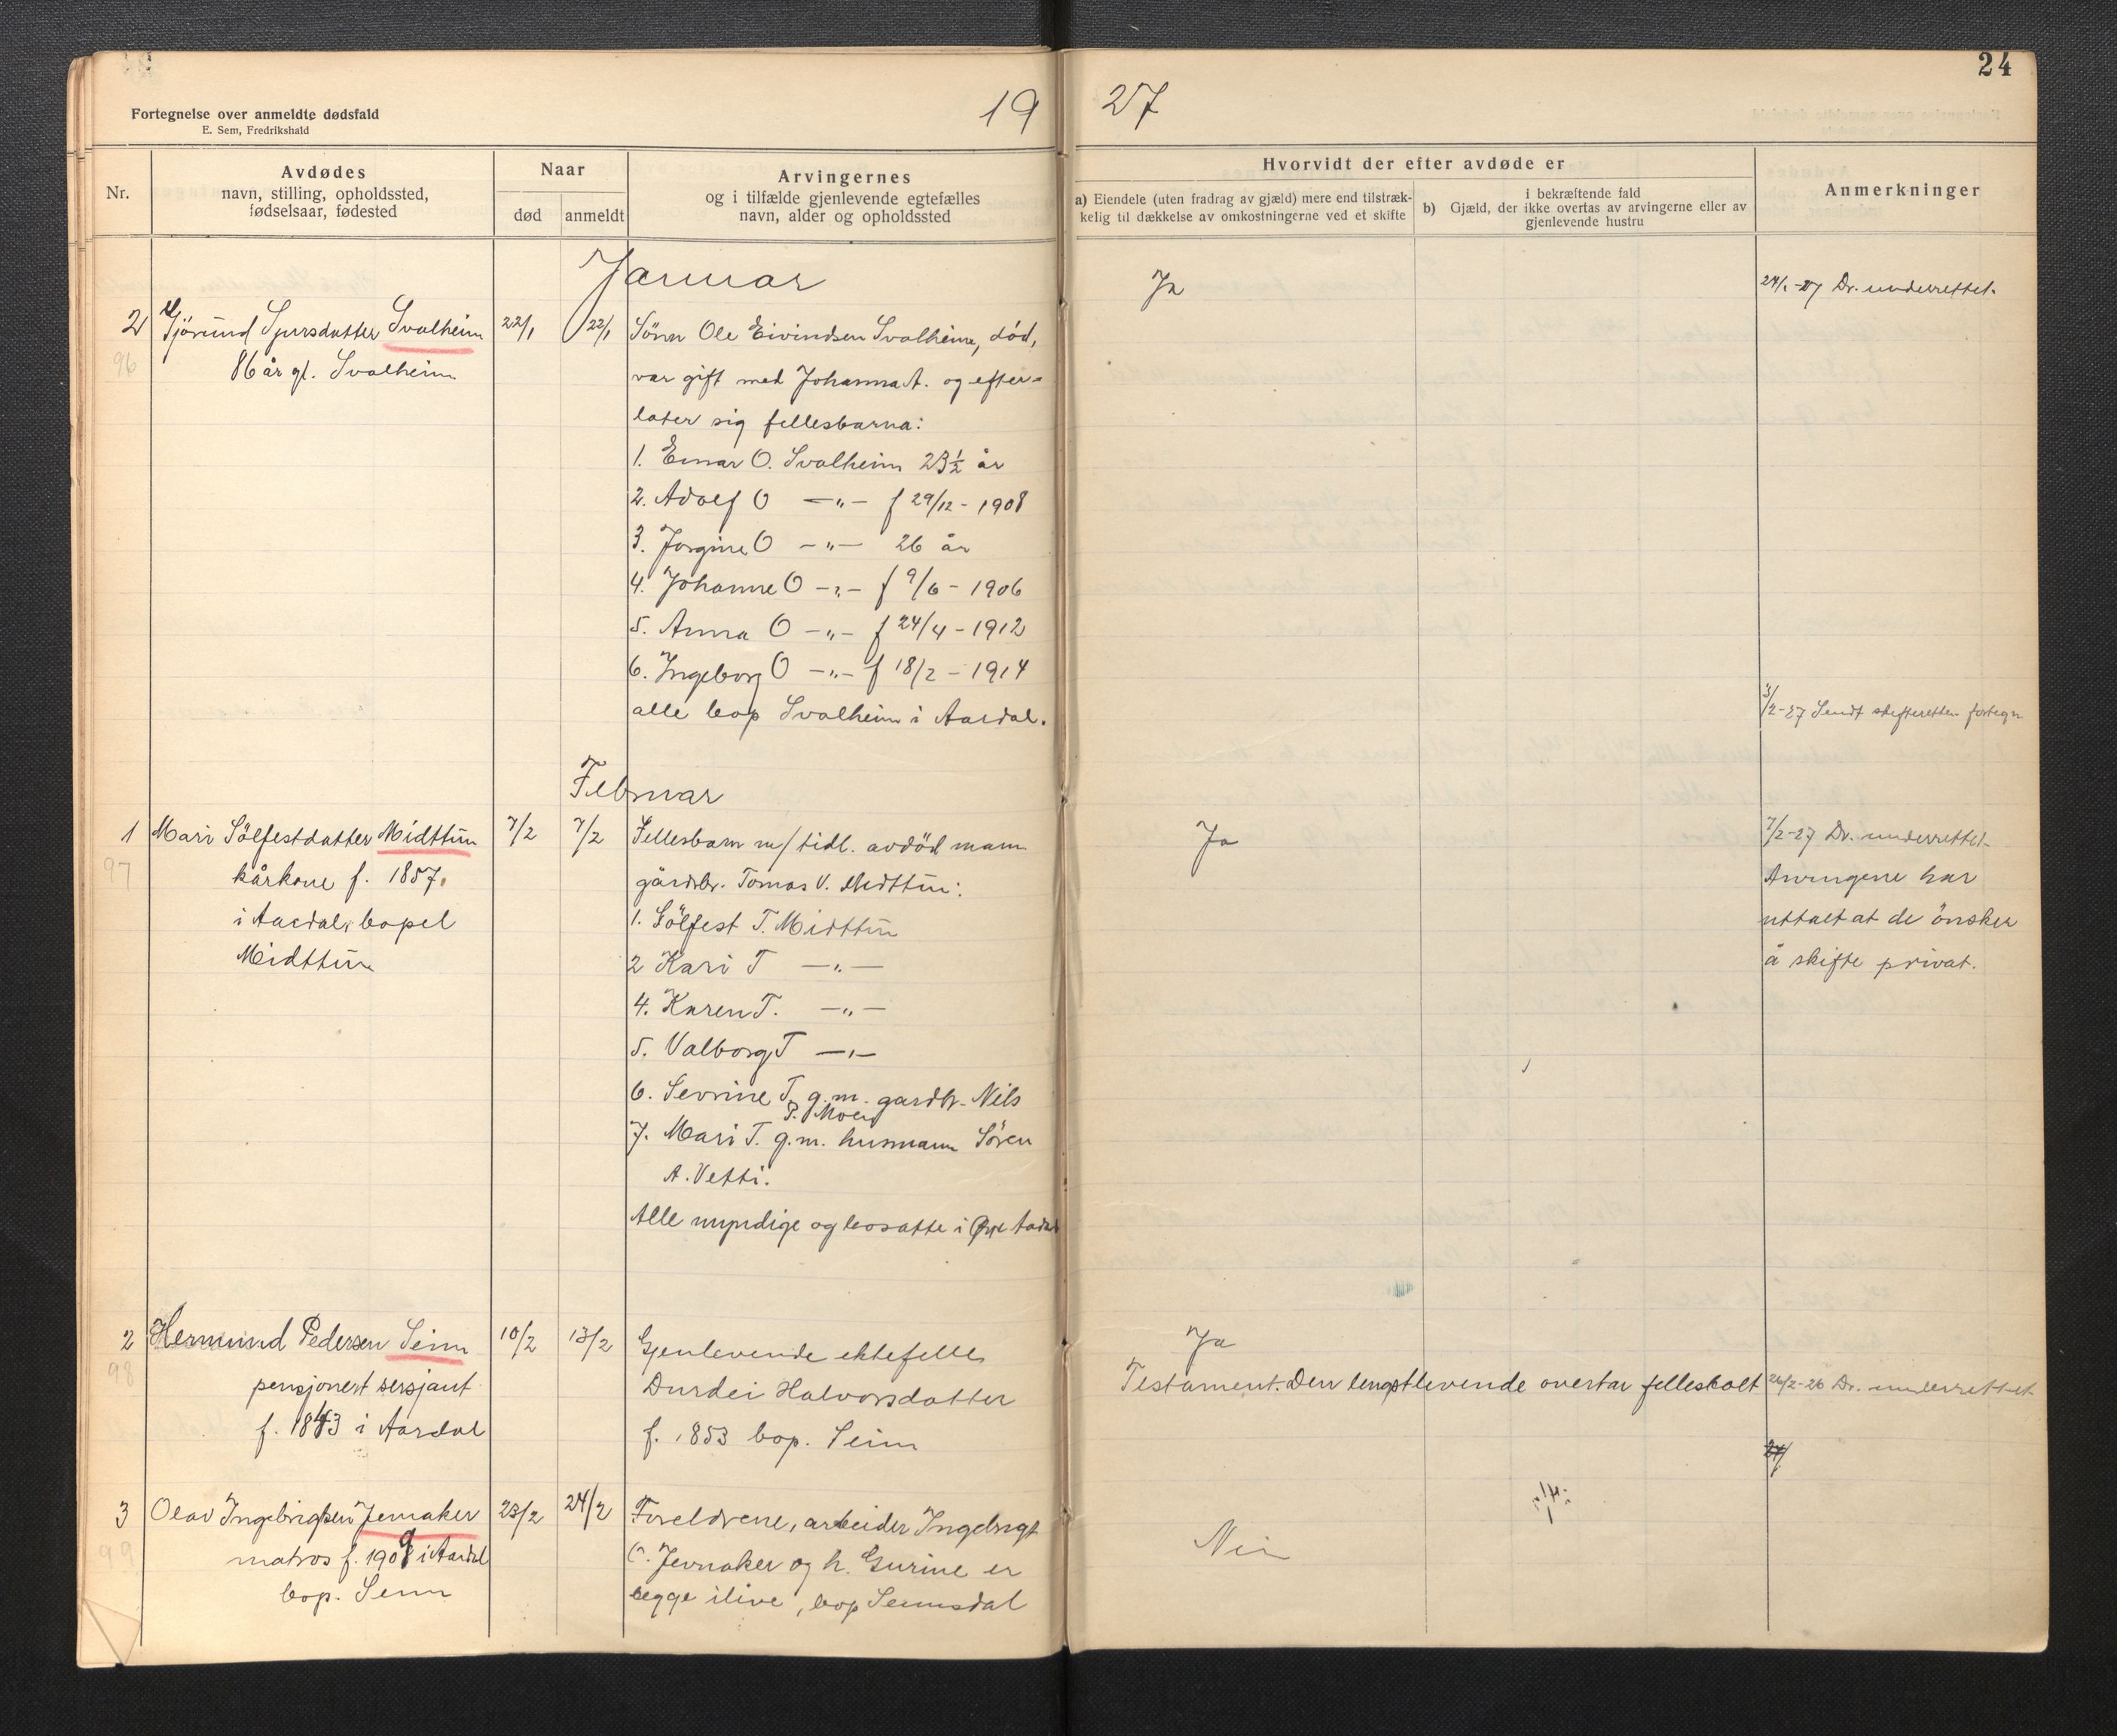 24
Fortegnelse over anmeldte dødsfald
E. Sem, Fredrikshald
19 27
Nr.
Avdødes
navn, stilling, opholdssted,
fødselsaar, fødested
Naar
død
anmeldt
Arvingernes
og i tilfælde gjenlevende egtefælles
navn, alder og opholdssted
Hvorvidt der efter avdøde er
a) Eiendele (uten fradrag av gjæld) mere end tilstræk-
kelig til dækkelse av omkostningerne ved et skifte
i bekræftende fald
b) Gjæld, der ikke overtas av arvingerne eller av
gjenlevende hustru
Anmerkninger
Januar
2 Sjursdatter Svalheim
96
86 år gl. Svalheim
22/1
22/1
Sönn Ole Eivindsen Svalheim, död,
var gift med Johanna A. og efter-
later sig fellesbarna:
1. Einar O. Svalheim 23½ år
2. Adolf O —"— f 29/12 - 1908
3. Jorgine O —"— 26 år
4. Johanne O —"— f 9/6 - 1906
5. Anna O —"— f 24/4 - 1912
6. Ingeborg O —"— f 18/2 - 1914
alle bop Svalheim i Aardal.
Ja
24/1-27 Dr. underrettet.
3/2-27 Sendt skifteretten fortegn
Februar
1 Mari Sölfestdatter Midttun
97
kårkone f. 1857,
i Aardal, bopel
Midttun
7/2
7/2
Fellesbarn m/ tidl. avdöd mann
gårdbr. Tomas V. Midttun:
1. Sölfest T. Midttun
2 Kari T —"—
4. Karen T. —"—
5. Valborg T —"—
6. Sevrine T. g.m. gardbr. Nils
P. Moen
7. Mari T. g.m. husmann Sören
A. Vetti.
Alle myndige og bosatte i Øvre Aardal
Ja
7/2-27 Dr. underrettet.
Arvingene har
uttalt at de önsker
å skifte privat.
2 Hermund Pedersen Seim
98
pensjonert sersjant
f. 1843 i Aardal
10/2
13/2
Gjenlevende ektefelle
Durdei Halvorsdatter
f. 1853 bop. Seim
Ja
Testament. Den lengstlevende overtar felleskalt
26/2-26 Dr. underrettet
3 Olav Ingebrigtsen Jevnaker
99
matros f. 1909 i Aardal
bop. Seim
23/2
24/2
Foreldrene, arbeider Ingebrigt
Jevnaker og h. Gurine er
begge ilive, bop Seimsdal
Nei